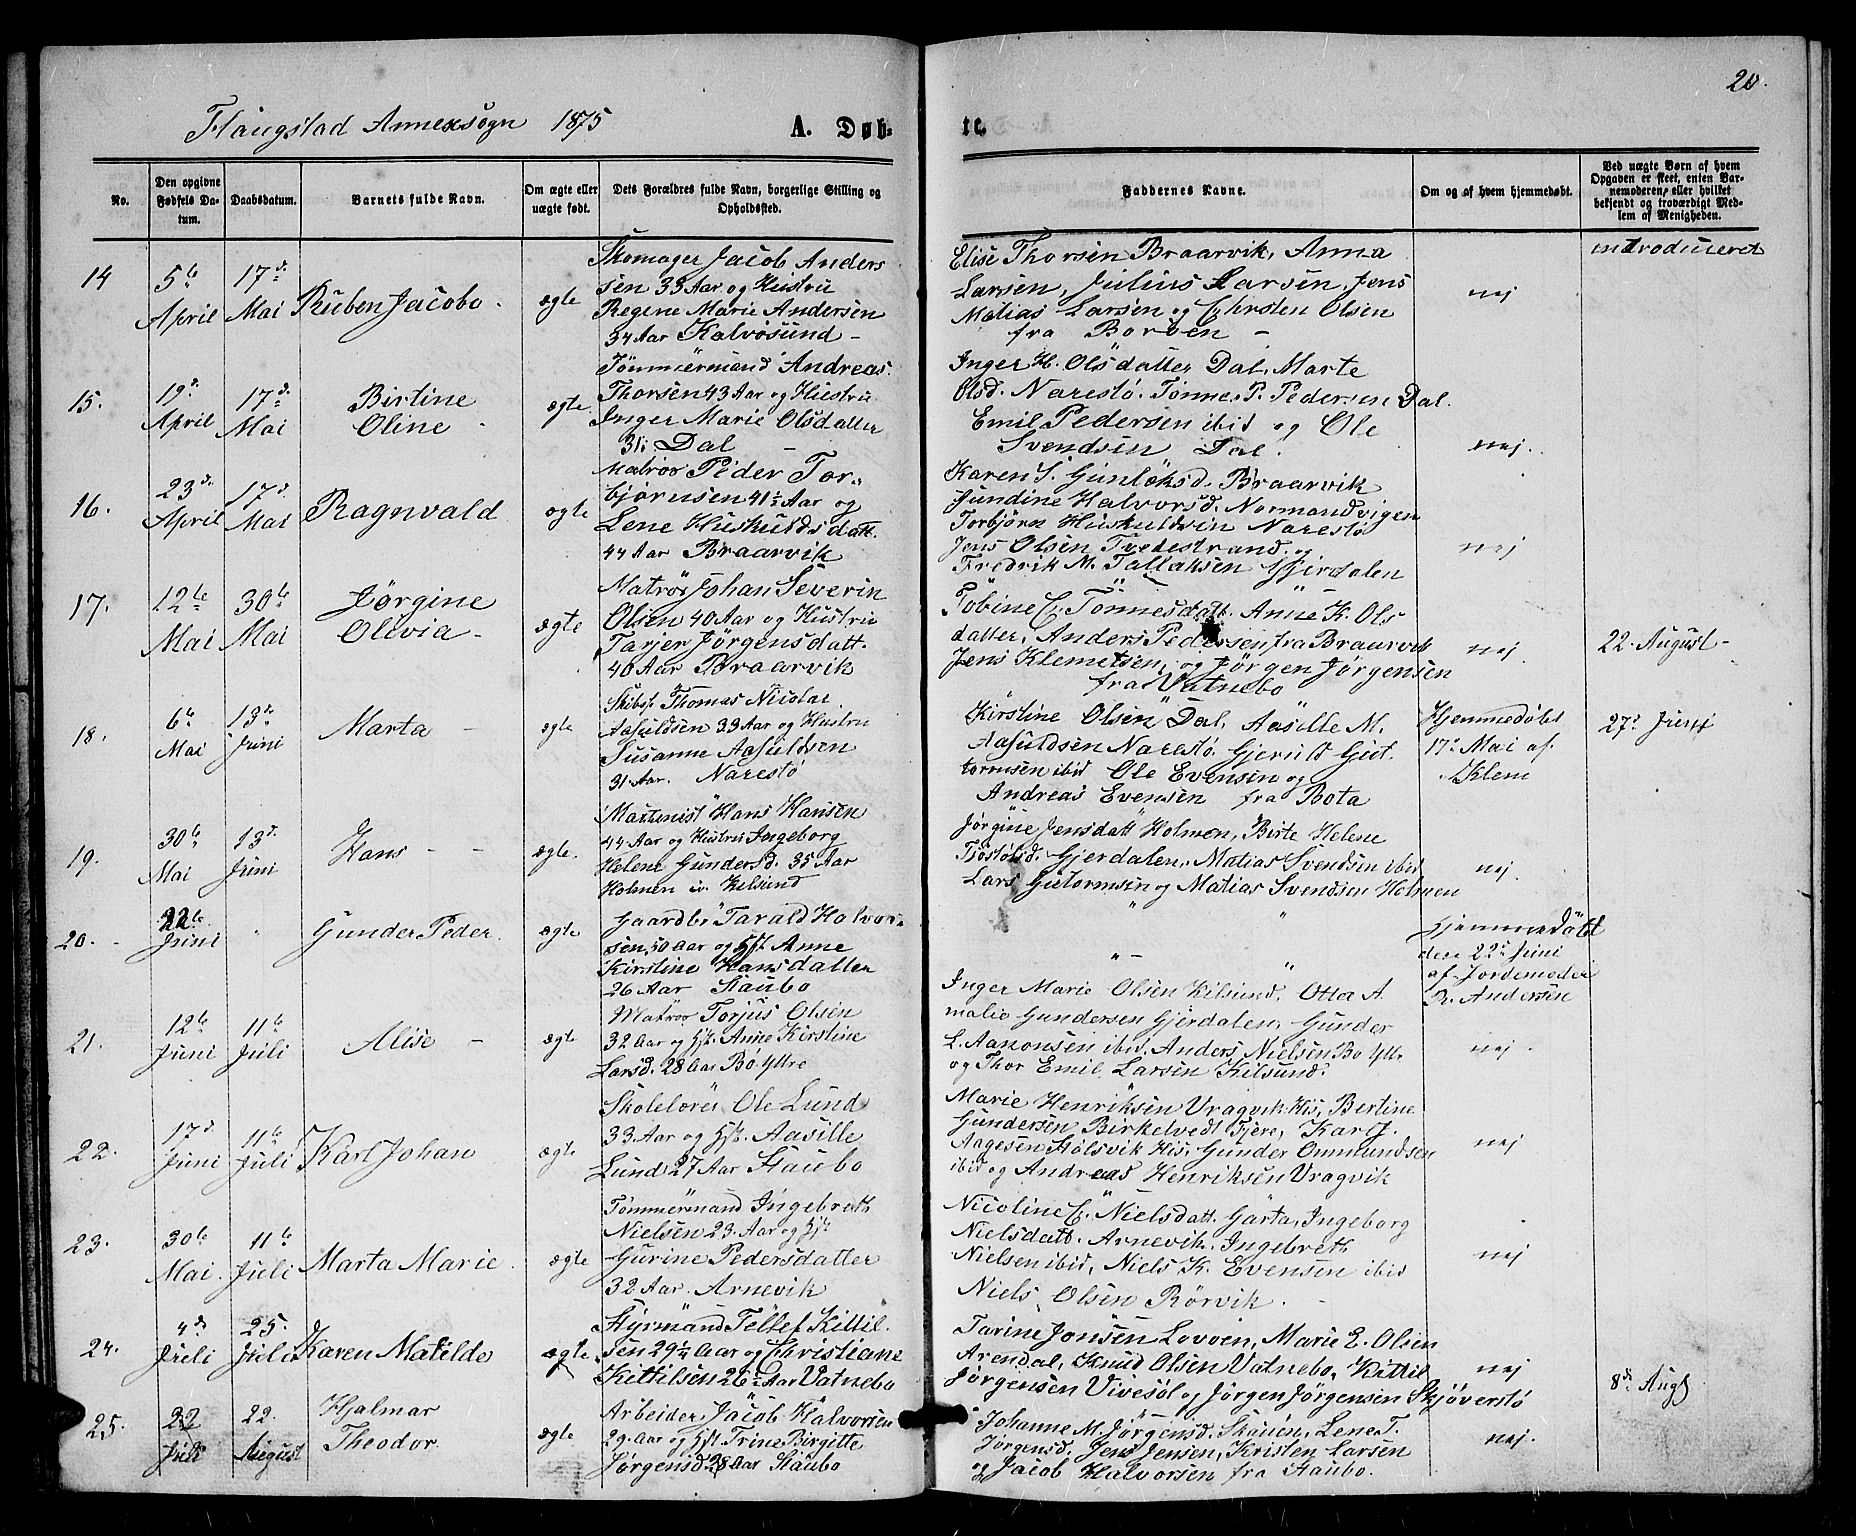 20.
Flangstad Annexsogn 1875 A. Døb-
te.
No.
Den opgivne Fødsels Datum.
Daabsdatum.
Barnets fulde Navn.
Om ægte eller uægte født.
Dets Forældres fulde Navn, borgerlige Stilling og Opholdssted.
Faddernes Navne.
Om og af hvem hjemmedøbt.
Ved uægte Børn af hvem Opgaven er skeet, enten Barnemoderen, eller hvilket bekjendt og troværdigt Medlem af Menigheden.
introduceret
14
5te April
17d. Mai
Ruben Jacobo.
ægte
Skomager Jacob Anders
sen 33 Aar og Hustru
Regene Marie Andersen
34 Aar Kalvøsund -
Elise Thorsen Braarvik, Anna
Larsen, Julius Larsen, Jens
Matias Larsen og Chrsten Olsen
fra Borøen -
nej
15.
19d. April
17d. Mai
Birtine
Oline
ægte.
Tømmermand Andreas
Thorsen 43 Aar og Hustru
Inger Marie Olsdatter
31. Dal -
Inger H. Olsdatter Dal, Marte
Olsd. Narestö. Tönne P. Pedersen Dal.
Emil Pedersen ibid og Ole
Svendsen Dal.
nej.
16.
23d. April
17d. Mai
Ragnvald
ægte
Matros Peder Tor-
bjørnsen 41½ Aar og
Lene Huskuldsdatt.
44 Aar Braarvik
Karen S. Gunløksd. Braarvik
Gundine Halvorsd. Normandvigen
Torbjörn Huskuldsen Narestö
Jens Olsen Tvedestrand og
Fredrik M. Tallaksen Gjerdalen
nej
17.
12te Mai
30te Mai
Jørgine
Olevia -
ægte
Matros Johan Severin
Olsen 40 Aar og Hustru
Tarjer Jörgensdatt.
40 Aar Braarvik
Tobine C. Tönnesdatt. Anne K. Ols
datter, Anders Pedersen fra Braarvik
Jens Klemetsen, og Jörgen Jörgensen
fra Vatnebo
nej
22. August -
18.
6te Mai
13de Juni
Marta -
ægte
Skibsf. Thomas Nicolai
Aasuldsen 33 Aar og Hustru
Susanne Aasuldsen
31 Aar. Narestö
Kirstine Olsen Dal, Aasille M.
Aasuldsen Narestö, Gjeruld Gut
tormsen ibid Ole Evensen og
Andreas Evensen fra Bota
Hjemmedöbt
17. Mai af
Klem
27d Juni
19.
30te Mai
13d. Juni
Hans - -
ægte.
Maskinist Hans Hansen
44 Aar og Hustru Ingeborg
Helene Gundersd. 35 Aar
Holmen i. Kilsund
Jørgine Jensdatt Holmen, Birte Helene
Tjöstölsd. Gjerdalen, Matias Svendsen ibid
Lars Gutormsen og Matias Svendsen Holmen
nej
20.
22te Juni
Gunder Peder
ægte
Gaardbr Tarald Halvor-
sen 50 Aar og Hst. Anne
Kirstine Hansdatter
26 Aar Staubo
Hjemmedöbt
den 22d Juni
af Jordemoder
R. Andersen
21.
12te Juni
11te Juli
Alise -
ægte
Matros Torjus Olsen
32 Aar og Hst. Anne Kirstine
Larsd. 28 Aar Bo Yttre
Inger Marie Olsen Kilsund, Otta A.
malie Gundersen Gjerdalen, Gunder
L. Aanonsen ibid, Anders Nielsen Bo Ytt.
og Thor Emil Larsen Kilsund.
nej.
22.
17d. Juni
11te Juli
Karl Johan
ægte
Skolelærer Ole Lund
33 Aar og Hst. Aasille
Lund 27 Aar Staubo
Marie Henriksen Vragvik His, Bertine
Gundersen Birkelvedt Tjere, Karl J.
Aagesen Stölsvik His, Gunder Ommundsen
ibid og Andreas Henriksen Vragvik
nej
23.
30te Mai.
11te Juli
Marta Marie.
ægte
Tømmermand Ingebreth
Nielsen 23 Aar og Hst
Gurine Pedersdatter
32 Aar. Arnevik
Nicoline C. Nielsdatt. Garta, Ingeborg
Nielsdatt. Arnevik. Ingebreth
Nielsen ibid, Niels K. Evensen ibid
Niels Olsen Rörvik.
nej
24.
4de Juli
25. Juli
Karen Matilde
ægte
Styrmand Tellef Kittil
sen 29½ Aar og Christiane
Kittilsen 26½ Aar Vatnebo
Tarine Jonsen Lovøen, Marie E. Olsen
Arendal, Knud Olsen Vatnebo, Kittil
Jörgensen Vivesöl og Jörgen Jörgensen Skjöverstö
nej
8de Augs
25.
22 Juli
22. August
Hjalmar
Theodor.
ægte
Arbeider Jacob Halvorsen
29 Aar og Hst Trine Birgitte
Jörgensd 28 Aar Staubo
Johanne M. Jörgensd. Skauen, Lene T.
Jørgensd. Jens Jensen, Kristen Larsen
og Jacob Halvorsen fra Staubo.
nej.